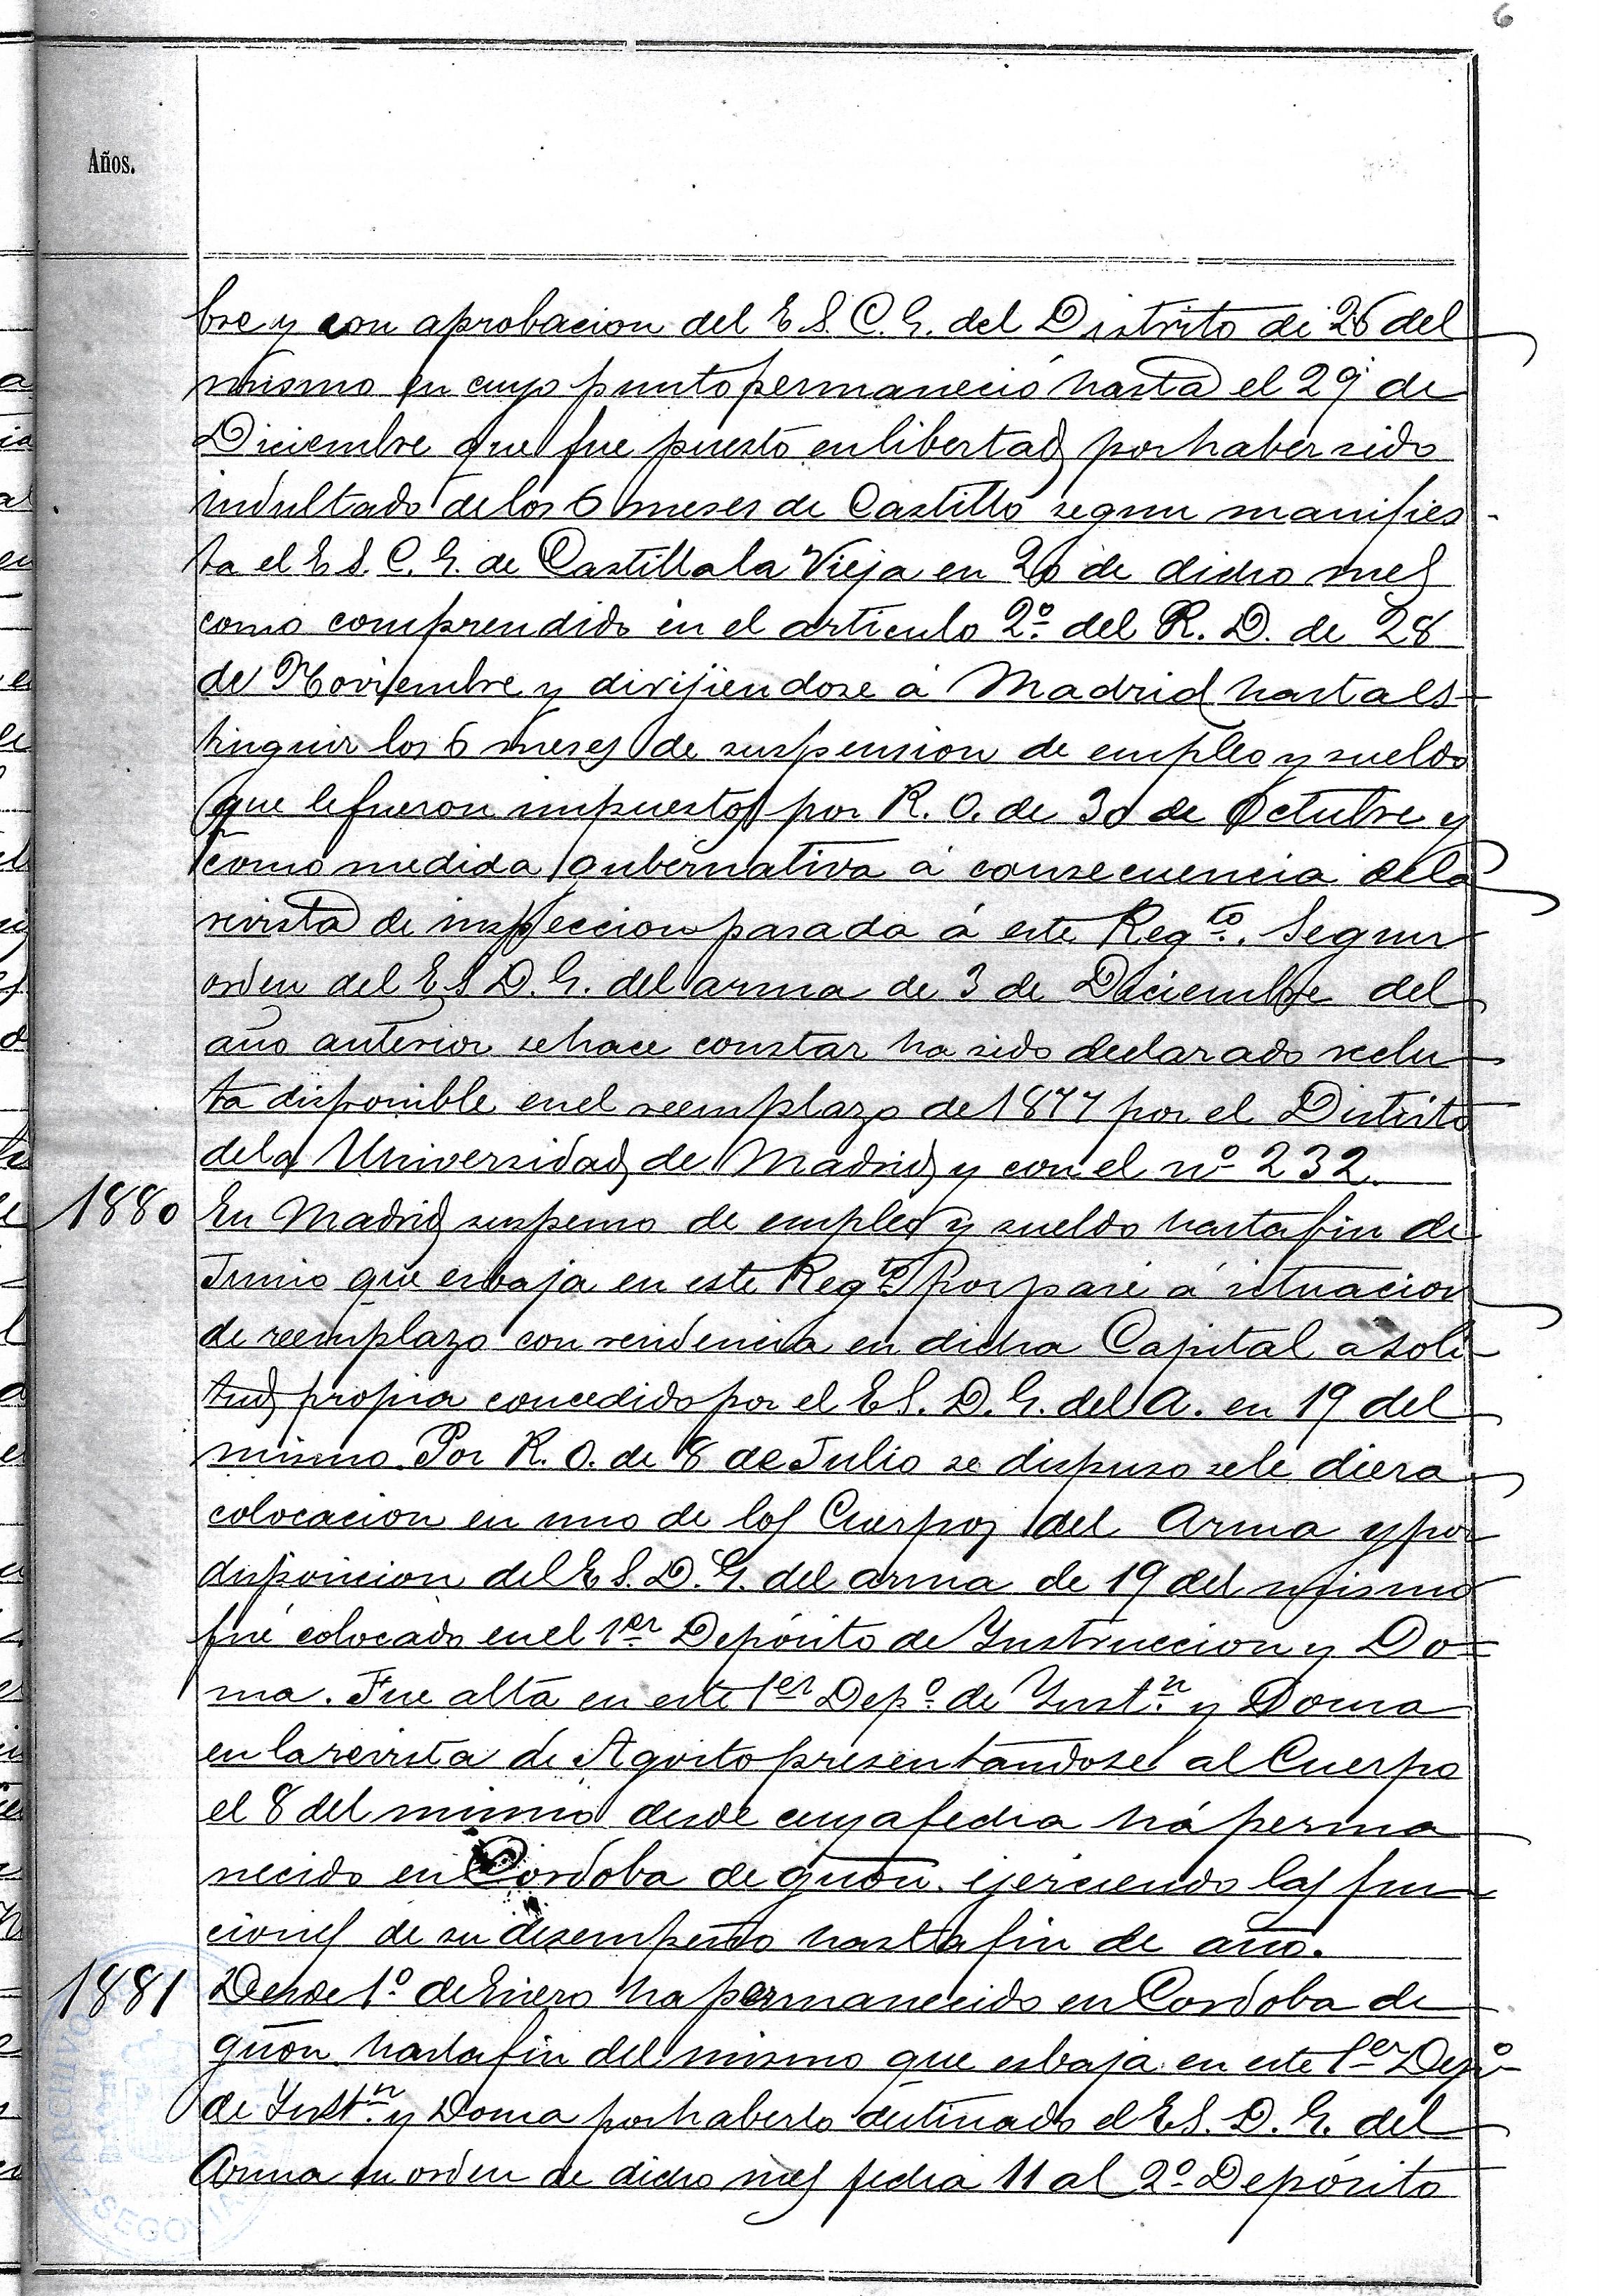 6
Años.
bre y con aprobacion del E. S. C. G. del Distrito de 26 del
mismo en cuyo punto permaneció hasta el 29 de
Diciembre que fue puesto en libertad por haber sido
indultado de los 6 meses de Castillo segun manifies-
ta el E. S. C. G. de Castilla la Vieja en 20 de dicho mes
como comprendido en el articulo 2º del R. D. de 28
de Noviembre y dirijiendose á Madrid hasta es-
tinguir los 6 meses de suspension de empleo y sueldo
que le fueron impuestos por R. O. de 30 de Octubre y
como medida gubernativa á consecuencia dela
revista de inspeccion pasada á este Regto. Segun
orden del E. S. D. G. del arma de 3 de Diciembre del
año anterior se hace constar ha sido declarado reclu
ta disponible en el reemplazo de 1877 por el Distrito
dela Universidad de Madrid y con el nº 232.
1880 En Madrid suspenso de empleo y sueldo hasta fin de
Junio que es baja en este Regto por pase á situacion
de reemplazo con residencia en dicha Capital a soli-
tud propia concedido por el E. S. D. G. del A. en 19 del
mismo. Por R. O. de 8 de Julio se dispuso sele diera
colocacion en uno de los Cuerpos del Arma y por
disposicion del E. S. D. G. del arma de 19 del mismo
fué colocado en el 1er Depósito de Instruccion y Do-
ma. Fue alta en este 1er Depº de Instn y Doma
en la revista de Agosto presentandose al Cuerpo
el 8 del mismo desde cuya fecha há perma
necido en Cordoba de guon. ejerciendo las fun
ciones de su desempeño hasta fin de año.
1881 Desde 1º de Enero ha permanecido en Cordoba de
guon hasta fin del mismo que es baja en este 1er Depº
de Instn y Doma por haberlo destinado el E. S. D. G. del
Arma en orden de dicho mes fecha 11 al 2º Depósito
ARCHIVO
SEGOVIA